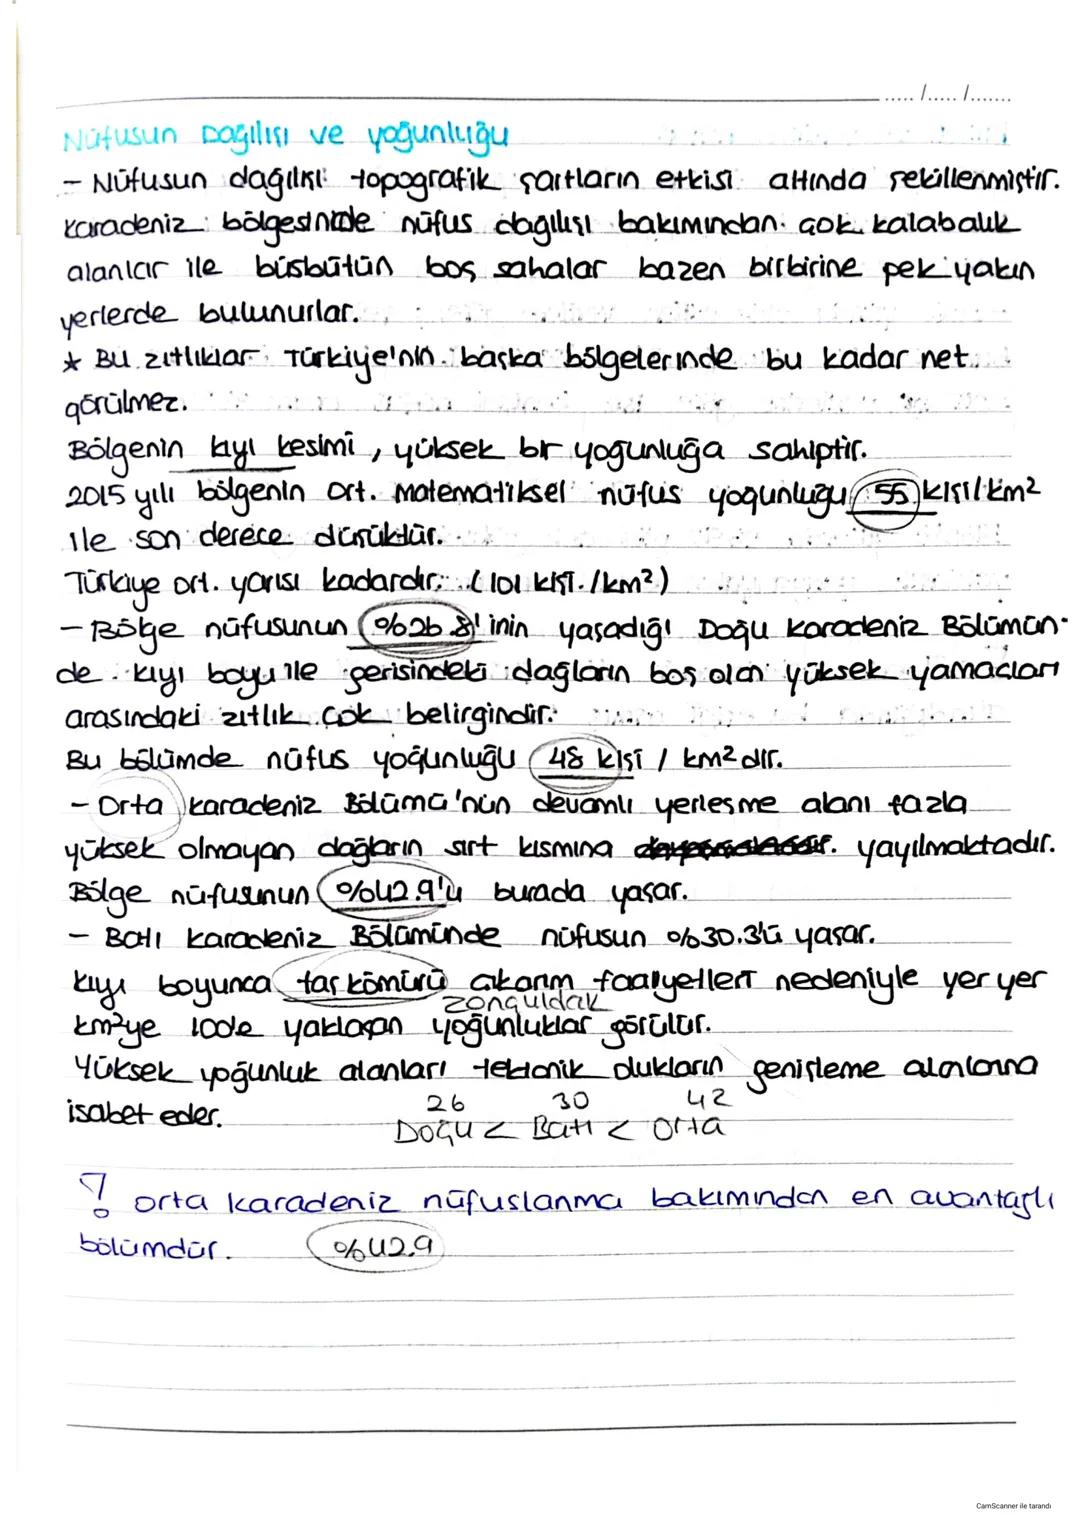 ...../...../.......
Nüfusun Dağılışı ve yoğunluğu
- Nüfusun dağılışı topografik şartların etkisi altında şekillenmiştir.
Karadeniz bölgesinde nüfus dağılışı bakımından çok kalabalık
alanlar ile büsbütün boş sahalar bazen birbirine pek yakın
yerlerde bulunurlar.
* Bu zıtlıklar Türkiye'nin başka bölgelerinde bu kadar net
görülmez.
Bölgenin kıyı kesimi, yüksek bir yoğunluğa sahiptir.
2015 yılı bölgenin ort. Matematiksel nüfus yoğunluğu 55 kişi/km²
ile son derece düşüktür.
Türkiye ort. yarısı kadardır. (101 kişi/km²)
- Bölge nüfusunun %26.8'inin yaşadığı Doğu Karadeniz Bölümün-
de kıyı boyu ile gerisindeki dağların boş olan yüksek yamaçları
arasındaki zıtlık çok belirgindir.
Bu bölümde nüfus yoğunluğu 48 kişi / km² dir.
- Orta Karadeniz Bölümü'nün devamlı yerleşme alanı fazla
yüksek olmayan dağların sırt kısmına yayılmaktadır.
Bölge nüfusunun %42.9'u burada yaşar.
- Batı Karadeniz Bölümünde nüfusun %30.3'ü yaşar.
Kıyı boyunca taş kömürü çıkarım faaliyetleri nedeniyle yer yer
zonguldak
km²ye 100de yaklaşan yoğunluklar görülür.
Yüksek yoğunluk alanları tektonik olukların genişleme alanlarına
isabet eder.
26 30 42
Doğu < Batı < Orta
! Orta Karadeniz nüfuslanma bakımından en avantajlı
bölümdür. %42.9
CamScanner ile tarandı